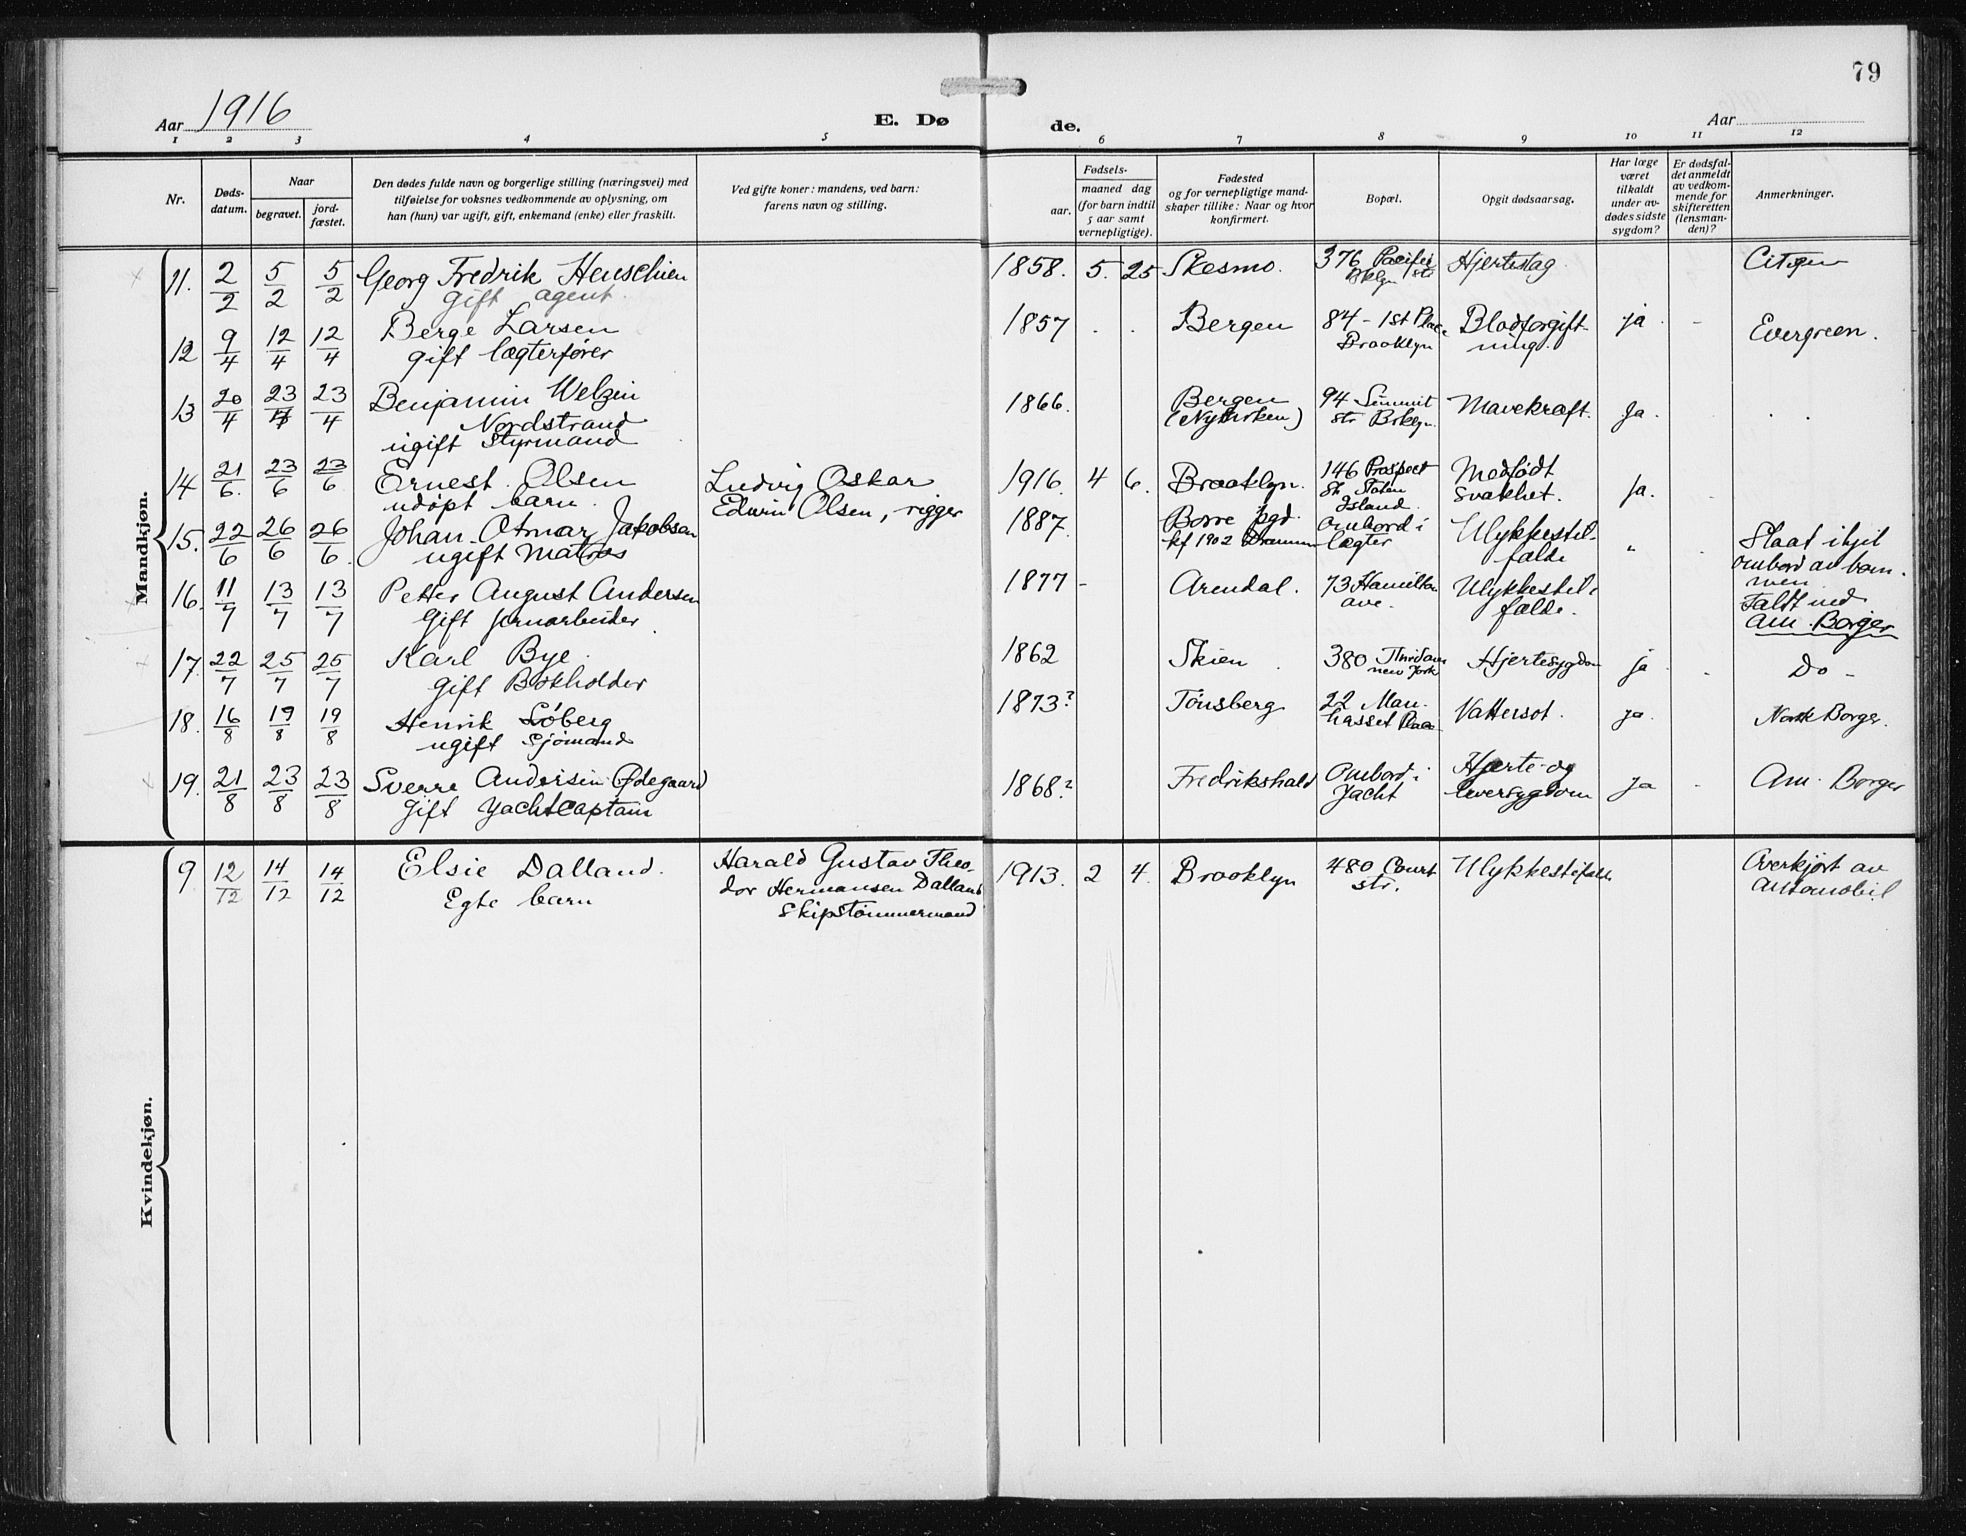 79
Aar 1916
E. Dø
de.
Aar
1 2 3 4 5 6 7 8 9 10 11 12
Nr.
Døds-
datum.
Naar
begravet.
jord-
fæstet.
Den dødes fulde navn og borgerlige stilling (næringsvei) med
tilføielse for voksnes vedkommende av oplysning, om
han (hun) var ugift, gift, enkemand (enke) eller fraskilt.
Ved gifte koner: mandens, ved barn:
farens navn og stilling.
Fødsels-
aar.
maaned dag
(for barn indtil
5 aar samt
vernepligtige).
Fødested
og for vernepligtige mand-
skaper tillike: Naar og hvor
konfirmert.
Bopæl.
Opgit dødsaarsag.
Har læge
været
tilkaldt
under av-
dødes sidste
sygdom?
Er dødsfal-
det anmeldt
av vedkom-
mende for
skifteretten
(lensman-
den)?
Anmerkninger.
Mandkjøn.
11. 2/2 5/2 5/2 Georg Fredrik Henschien
gift agent.
1858. 5. 25 Skesmo. 376 Pacific
Bklyn str
Hjerteslag Citizen
12 9/4 12/4 12/4 Berge Larsen
gift lægterfører
1857 . . Bergen 84 - 1st Place
Brooklyn
Blodforgift-
ning.
ja - Evergreen.
13 20/4 23/4 23/4 Benjamin Welzin
Nordstrand
ugift Styrmand
1866. Bergen
(Nykirken)
94 Summit
str Bklyn.
Mavekræft. Ja. . .
14 21/6. 23/6 23/6 Ernest Olsen
udøpt barn.
Ludvig Oskar
Edwin Olsen, rigger
1916. 4 6. Brooklyn. 146 Prospect
St. Staten
Island.
Medfødt
svakhet.
Ja.
15. 22/6 26/6 26/6. Johan Otmar Jakobsen
ugift Matros
1887. Borre pgd.
kf 1902 Drammen
ombord i
lægter
Ulykkestil-
fælde
" Slaat ihjel
ombord av bom-
men.
16. 11/7 13/7 13/7 Petter August Andersen
Gift jernarbeider.
1877 - Arendal. 73 Hamilton
ave.
Ulykkestil-
fælde.
Faldt ned
Am. Borger
17. 22/7 25/7 25/7 Karl Bye.
Gift Bokholder
1862 Skien. 380 Third ave
new York
Hjertesygdom ja . Do -
18. 16/8 19/8 19/8 Henrik Søberg
ugift Sjømand
1873? Tønsberg 22 Man-
hasset Place
Vattersot. ja. Norsk Borger.
19. 21/8 23/8 23/8 Sverre Andersin Ødegaard
Gift Yachtcaptain
1868? Fredrikshald Ombord i
Yacht
Hjerte- og
leversygdom
ja - Am. Borger
Kvindekjøn.
9. 12/12 14/12 14/12 Elsie Dalland.
Egte barn
Harald Gustav Theo-
dor Hermansen Dalland
Skipstømmermand
1913. 2 4. Brooklyn 480 Court
str.
Ulykkestilfælde Overkjørt av
automobil